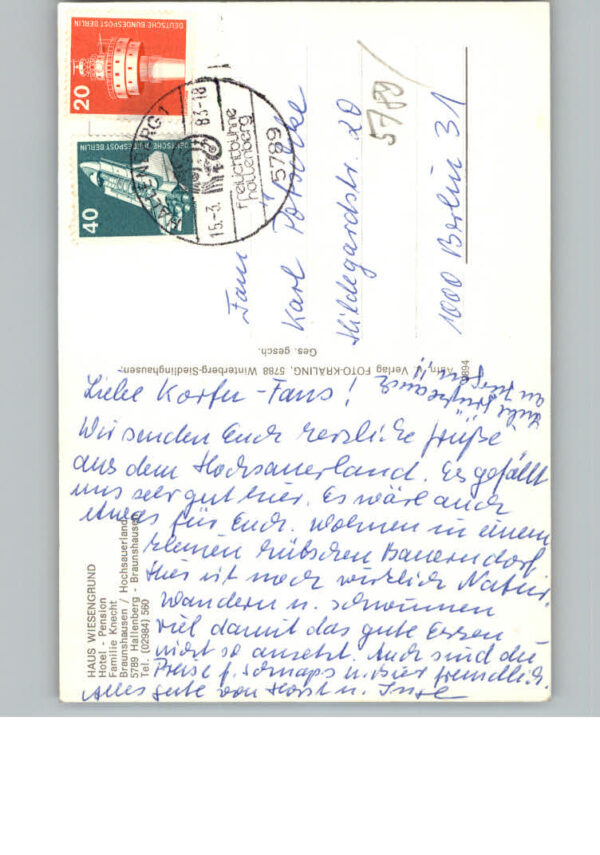 DEUTSCHE BUNDESPOST BERLIN
20
DEUTSCHE BUNDESPOST BERLIN
40
HALLENBERG 1
15.-3. 83-18
Freilichtbühne
Hallenberg
5789
5789
Fam
Karl
Hildegardstr. 20
1000 Berlin 31
Ges. gesch.
Verlag FOTO-KRALING, 5788 Winterberg-Siedlinghausen
Liebe Korfu-Fans!
Wir senden Euch herzliche Grüße
aus dem Hochsauerland. Es gefällt
uns sehr gut hier. Es wäre auch
etwas für Euch. Wohnen in einem
kleinen hübschen Bauerndorf.
Hier ist noch wirklich Natur.
Wandern u. schwimmen
viel damit das gute Essen
nicht so ansetzt. Auch sind die
Preise f. Schnaps u. Bier freundlich.
Alles gute von Horst u. Inge
HAUS WIESENGRUND
Hotel - Pension
Familie Knecht
Braunshausen / Hochsauerland
5789 Hallenberg - Braunshausen
Tel. (02984) 560